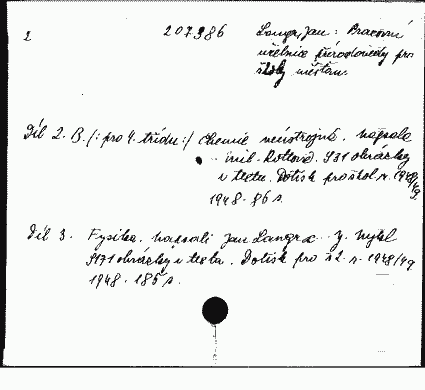 2 207986 Langr, Jan: Pracovní
učebnice přírodovědy pro
školy měšťan.
Díl 2. B. /: pro 4. třídu :/ Chemie neústrojná. napsala
Emil. Kottová. S 31 obrázky
v textu. Dotisk pro škol. r. 1948/49.
1948. 86 s.
Díl 3. Fysika. napsali Jan Langr a J.
S 171 obrázky v textu. Dotisk pro šk. r. 1948/49
1948. 186 s.